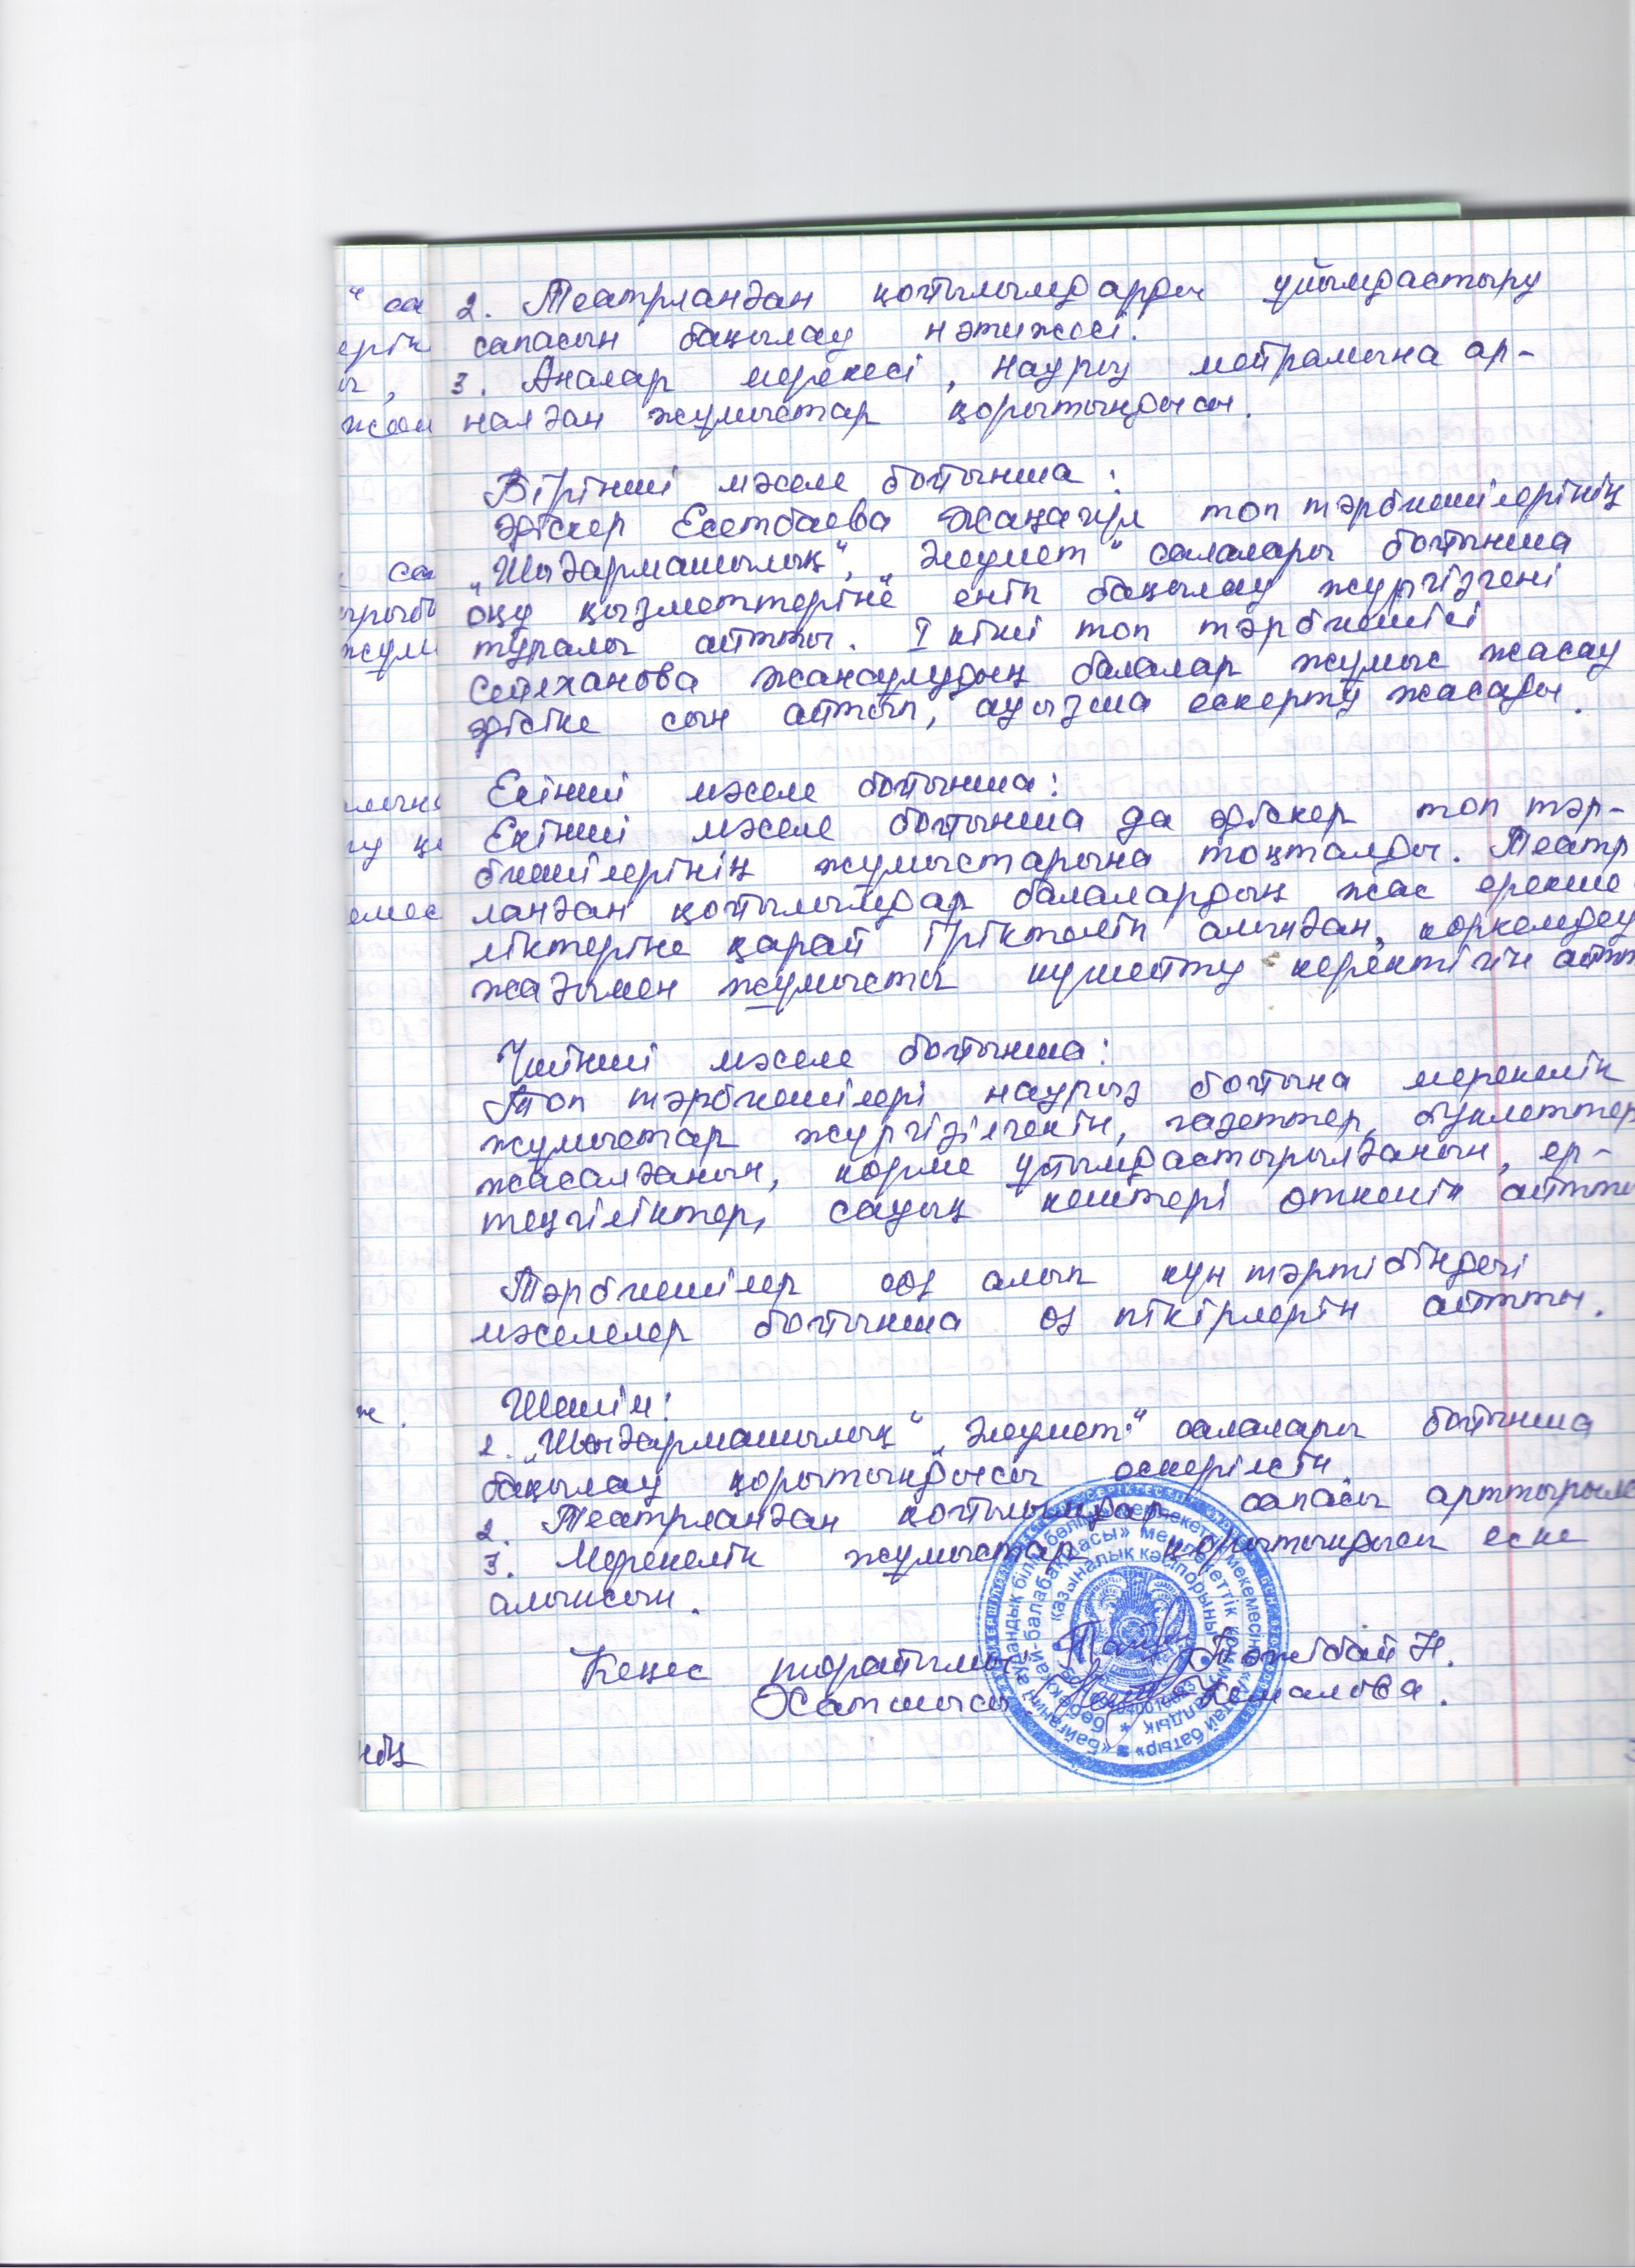 2. Театрланған қойылымдарды ұйымдастыру
сапасын бақылау нәтижесі.
3. Аналар мерекесі, Наурыз мейрамына ар-
налған жұмыстар қорытындысы.
Бірінші мәселе бойынша:
Әдіскер Есетбаева Жаңагүл топ тәрбиешілерінің
„Шығармашылық“, „Әлеумет“ салалары бойынша
оқу қызметтеріне еніп бақылау жүргізгені
туралы айтты. I кіші топ тәрбиешісі
Сейлханова Жансұлудың балалар жұмыс жасау
әдісіне сын айтып, ауызша ескерту жасады.
Екінші мәселе бойынша:
Екінші мәселе бойынша да әдіскер топ тәр-
биешілерінің жұмыстарына тоқталды. Театр
ланған қойылымдар балалардың жас ерекше
ліктеріне қарай іріктеліп алынған, көркемдеу
жағымен жұмысты күшейту керектігін айтт
Үшінші мәселе бойынша:
Топ тәрбиешілері наурыз бойына мерекелік
жұмыстар жүргізілгенін, газеттер, буклеттер
жасалғанын, көрме ұйымдастырылғанын, ер-
теңгіліктер, сауық кештері өткенін айтты
Тәрбиешілер сөз алып күн тәртібіндегі
мәселелер бойынша өз пікірлерін айтты.
Шешім:
1. „Шығармашылық“ „Әлеумет“ салалары бойынша
бақылау қорытындысы ескерілсін.
2. Театрланған қойылымдар сапасы арттырылс
3. Мерекелік жұмыстар қорытындысы еске
алынсын.
Кеңес төрайымы: Тәжібай Н.
Хатшысы: Кемалова.